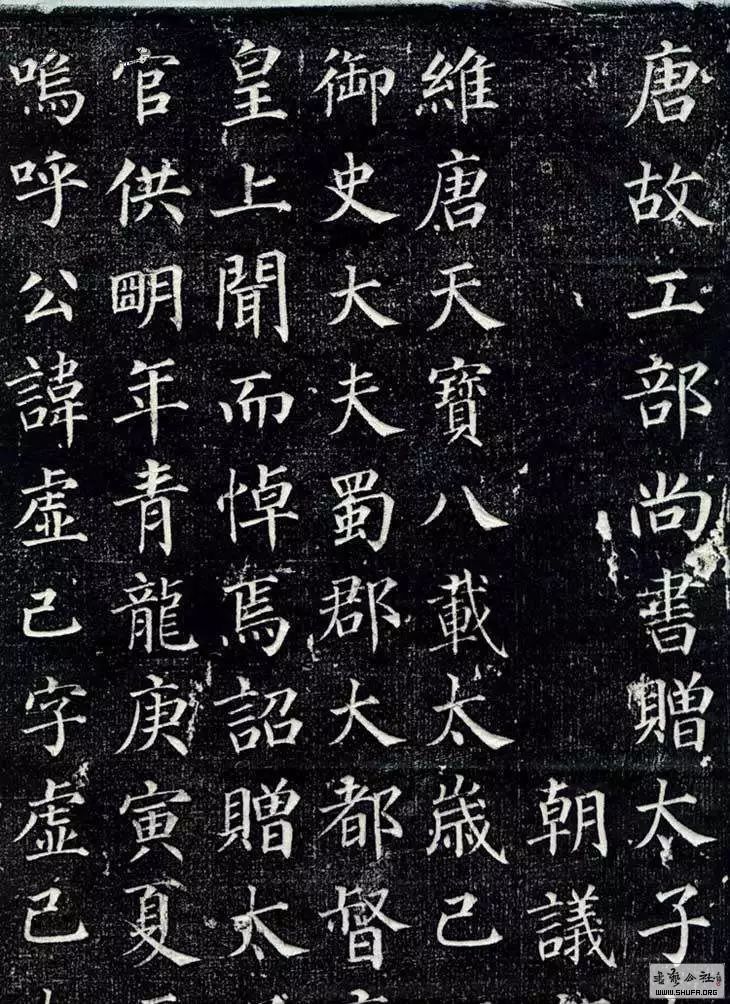 唐故工部尚書贈太子
朝議
維唐天寶八載太歲己
御史大夫蜀郡大都督
皇上聞而悼焉詔贈太
官供明年青龍庚寅夏
嗚呼公諱虛己字虛己
WWW.SHUFA.ORG